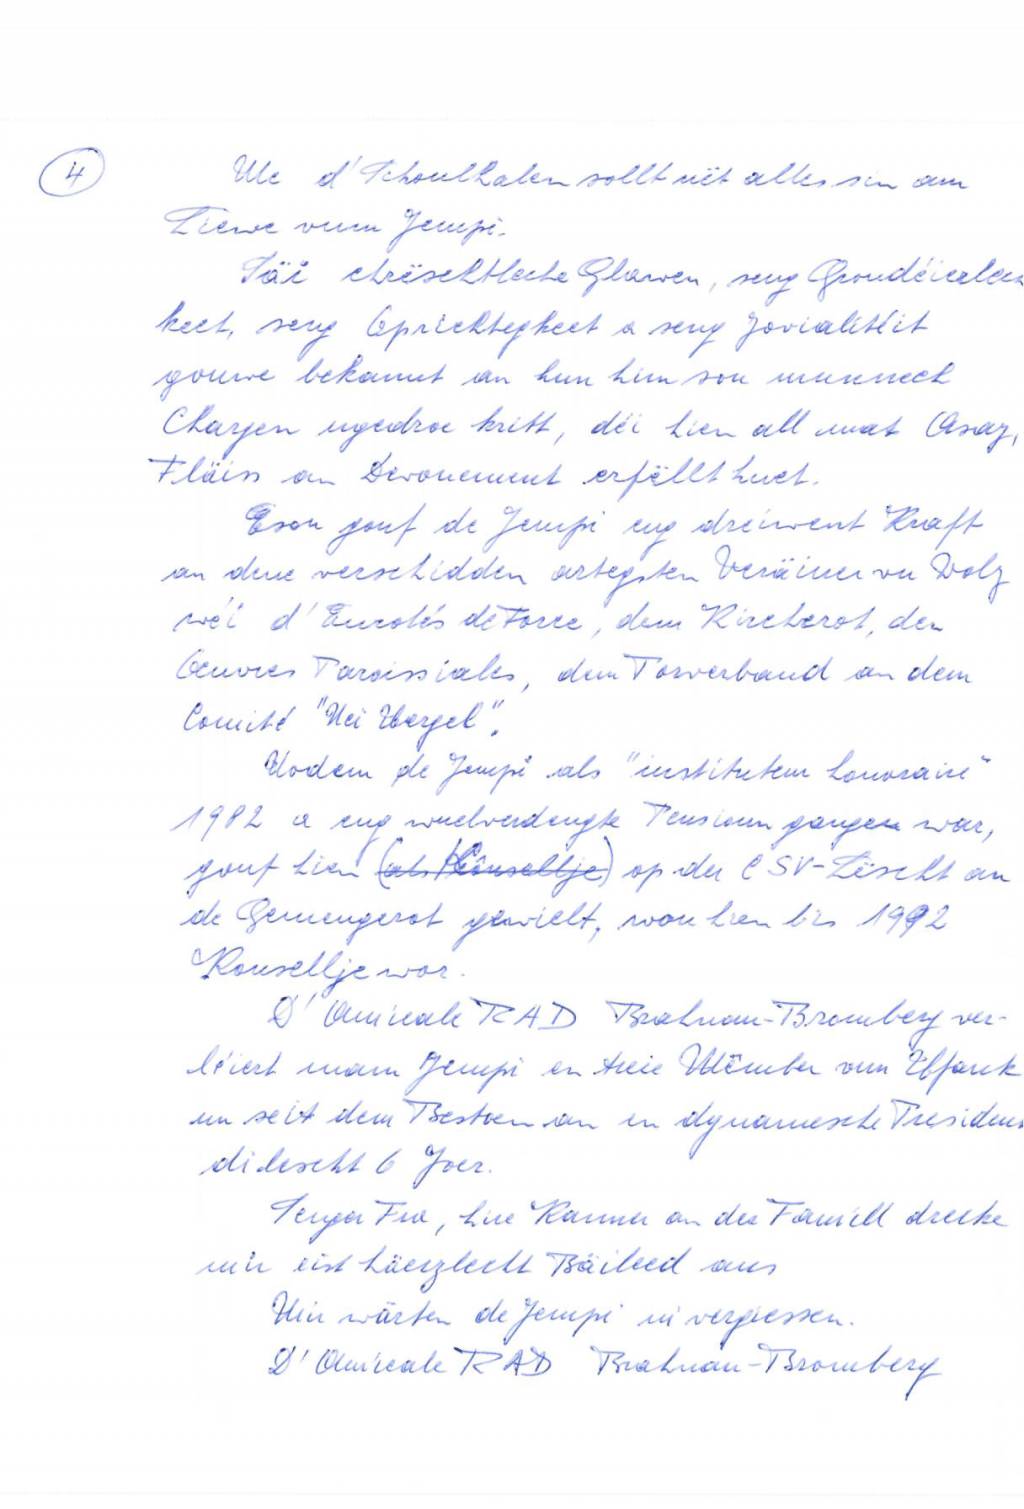 4
Me d'Schoulhalen sollt nët alles sin am
Liewe vum Jempi.
Säi chrëschtleche Glawen, seng Grondéierlech
keet, seng Oprichtegkeet a seng Jovialitéit
gouwe bekannt an hun him sou munnech
Chargen ugedroe kritt, déi hien all mat Asaz,
Fläiss an Devouement erfëllt huet.
Esou gouf de Jempi eng dreiwent Kraft
an dene verschidden artegsten Veräiner vu Wolz
wéi d'Eurotés de Force, dem Kircherot, den
Oeuvres Paroissiales, dem Porverband an dem
Comité "Nei Uergel".
Nodem de Jempi als "instituteur honoraire"
1982 a eng wuelverdengte Pensioun gangen war,
gouf hien (als Konsellje) op der CSV-Lëscht an
de Gemengerot gewielt, wou hien bis 1992
Konsellje wor.
D'Amicale RAD Brahnau-Bromberg ver-
léiert mam Jempi en treie Mëmber vum Ufank
un seit dem Bestoen an en dynamesche President
di lescht 6 Joer.
Senger Fra, hire Kanner an der Famill drecke
mir eist häerzlecht Bäileed aus
Mir wärten de Jempi ni vergiessen.
D'Amicale RAD Brahnau-Bromberg